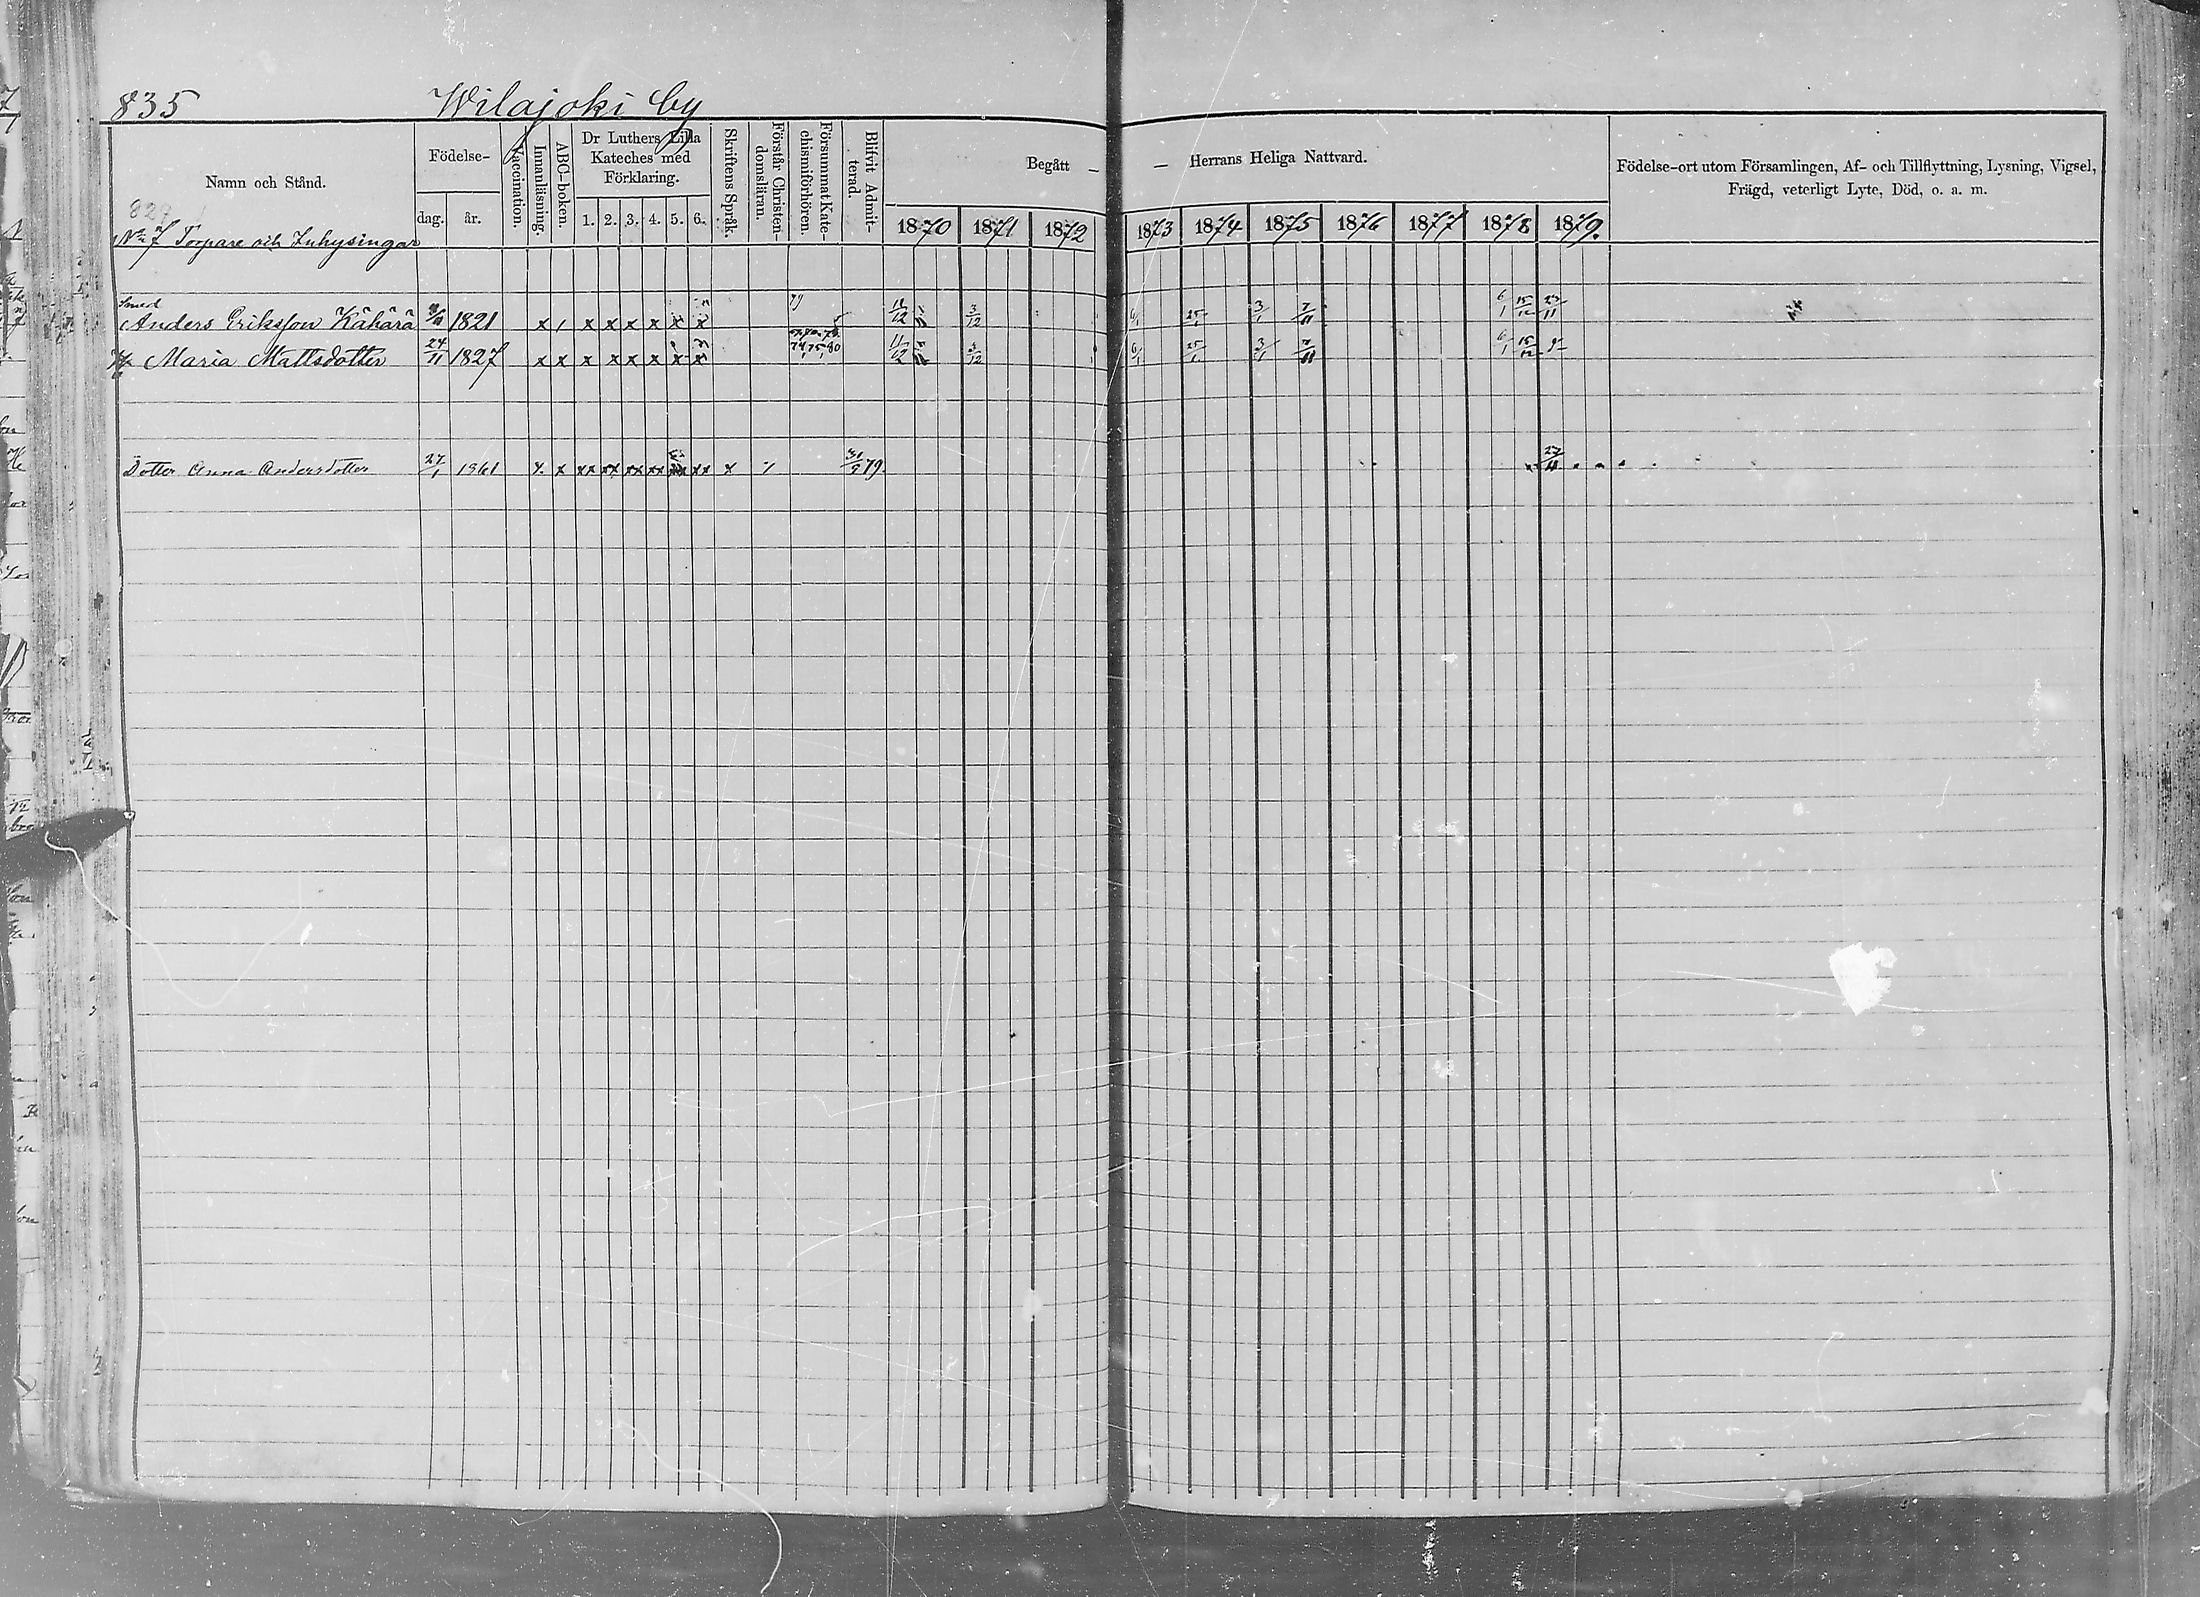 835 Wilajoki by
Namn och Stånd.
Födelse-
dag. år.
Vaccination.
Innanläsning.
ABC-boken.
Dr Luthers Lilla
Kateches med
Förklaring.
1. 2. 3. 4. 5. 6.
Skriftens Språk.
Förstår Christen-
domsläran.
Försummat Kate-
chismiförhören.
Blifvit Admit-
terad.
Begått — — Herrans Heliga Nattvard.
1870 1871 1872 1873 1874 1875 1876 1877 1878 1879.
Födelse-ort utom Församlingen, Af- och Tillflyttning, Lysning, Vigsel,
Frägd, veterligt Lyte, Död, o. a. m.
829
No 7 Torpare och Inhysingar
Smed
Anders Eriksson Kähärä 1821 x / x x x x x x 79 11/12 3/12 6/1 25/1 3/1 7/11 6/1 15/12 23/11
H/u Maria Mattsdotter 24/11 1827 x x x x x x x x 74, 75, 80 11/12 3/12 6/1 25/1 3/1 7/11 6/1 15/12
Dotter Anna Andersdotter 27/1 1861 x x xx xx xx xx xx xx x 79. 23/11